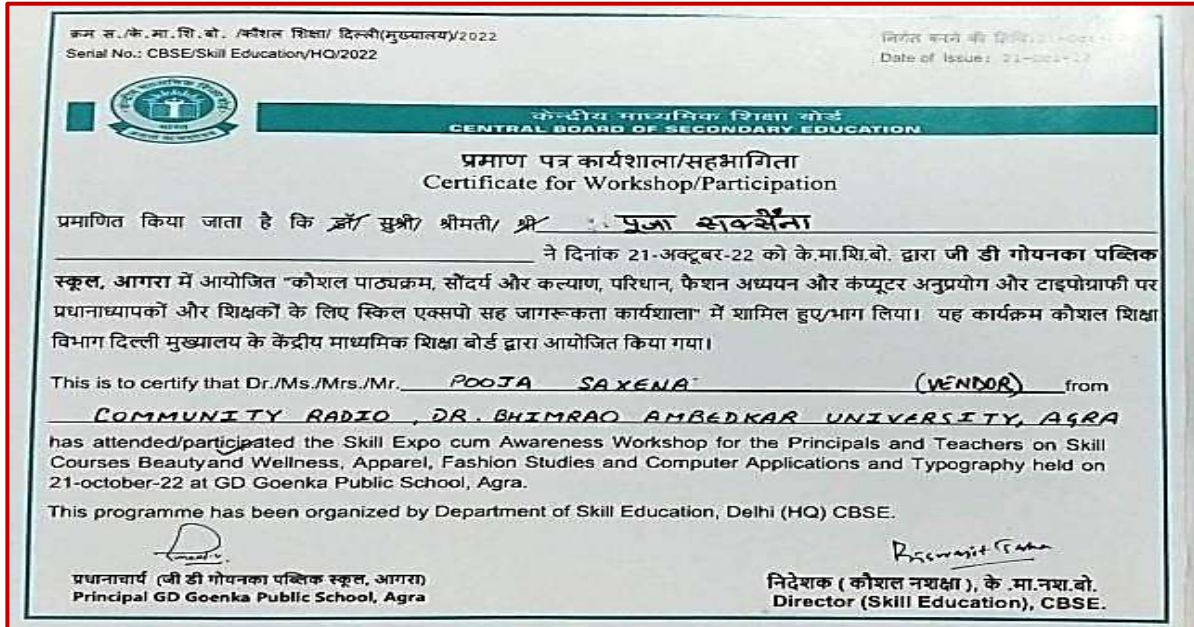 क्रम स./के.मा.शि.बो. /कौशल शिक्षा/ दिल्ली(मुख्यालय)/2022
Serial No.: CBSE/Skill Education/HQ/2022
निर्गत करने की तिथि:
Date of Issue: 21-
भारत
केन्द्रीय माध्यमिक शिक्षा बोर्ड
CENTRAL BOARD OF SECONDARY EDUCATION
प्रमाण पत्र कार्यशाला/सहभागिता
Certificate for Workshop/Participation
प्रमाणित किया जाता है कि डॉ/ सुश्री/ श्रीमती/ श्री पूजा सक्सैना
ने दिनांक 21-अक्टूबर-22 को के.मा.शि.बो. द्वारा जी डी गोयनका पब्लिक
स्कूल, आगरा में आयोजित "कौशल पाठ्यक्रम, सौंदर्य और कल्याण, परिधान, फैशन अध्ययन और कंप्यूटर अनुप्रयोग और टाइपोग्राफी पर
प्रधानाध्यापकों और शिक्षकों के लिए स्किल एक्सपो सह जागरूकता कार्यशाला" में शामिल हुए/भाग लिया। यह कार्यक्रम कौशल शिक्षा
विभाग दिल्ली मुख्यालय के केंद्रीय माध्यमिक शिक्षा बोर्ड द्वारा आयोजित किया गया।
This is to certify that Dr./Ms./Mrs./Mr. POOJA SAXENA (VENDOR) from
COMMUNITY RADIO, DR. BHIMRAO AMBEDKAR UNIVERSITY, AGRA
has attended/participated the Skill Expo cum Awareness Workshop for the Principals and Teachers on Skill
Courses Beautyand Wellness, Apparel, Fashion Studies and Computer Applications and Typography held on
21-october-22 at GD Goenka Public School, Agra.
This programme has been organized by Department of Skill Education, Delhi (HQ) CBSE.
Biswajit Saha
प्रधानाचार्य (जी डी गोयनका पब्लिक स्कूल, आगरा)
Principal GD Goenka Public School, Agra
निदेशक ( कौशल नशक्षा ), के .मा.नश.बो.
Director (Skill Education), CBSE.